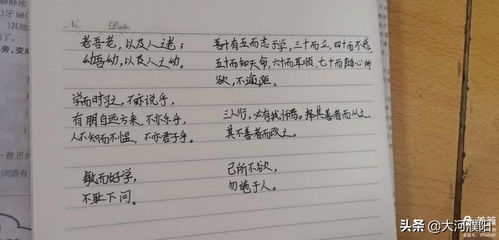 No.
Date.
老吾老,以及人之老;
幼吾幼,以及人之幼。
吾十有五而志于学,三十而立,四十而不惑
五十而知天命,六十而耳顺,七十而随心所
欲,不逾
学而时习之,不亦说乎,
有朋自远方来,不亦乐乎,
人不知而不愠,不亦君子乎。
三人行,必有我师焉。择其善者而从之
其不善者而改之。
敏而好学,
不耻下问。
己所不欲,
勿施于人。
旁,变成
一意思的
词语有
头条 @大河濮阳